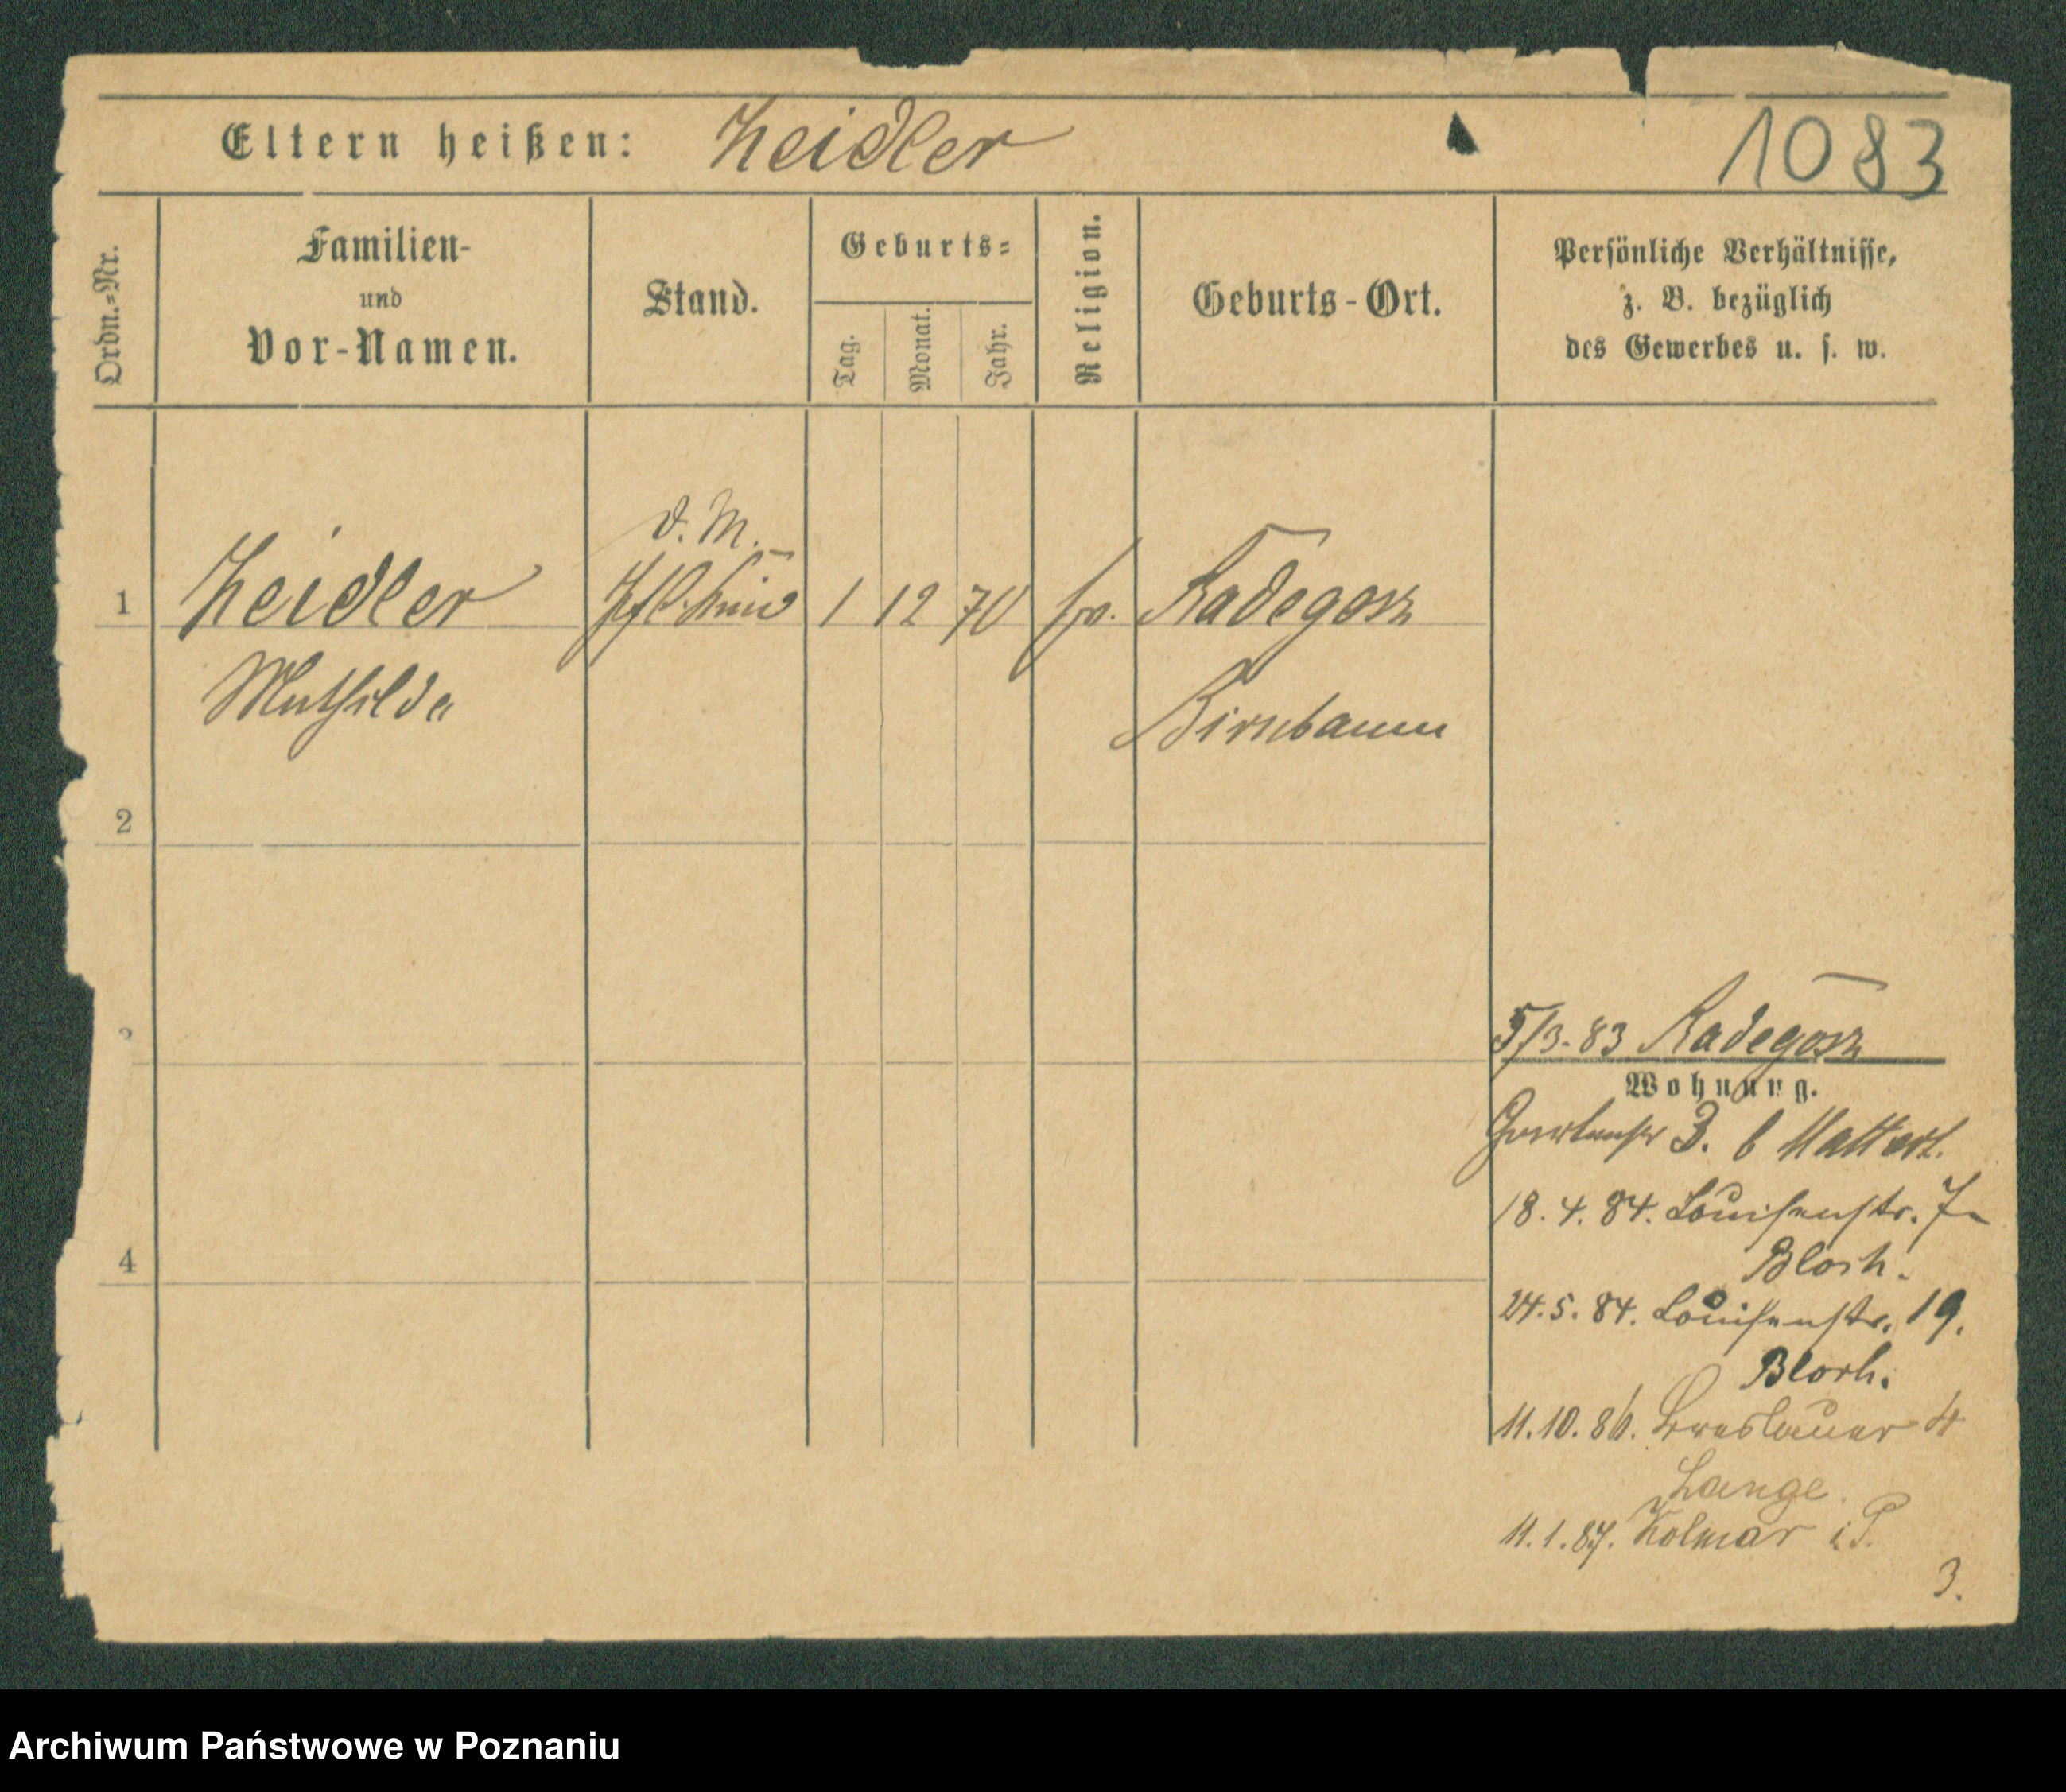 Eltern heißen: Zeidler 1083
Ordn.=Nr.
Familien-
und
Vor-Namen.
Stand.
Geburts=
Tag.
Monat.
Jahr.
Religion.
Geburts-Ort.
Persönliche Verhältnisse,
z. B. bezüglich
des Gewerbes u. s. w.
D. M.
1 Zeidler 1 12 70 Radegosz
Mathilde Birnbaum
2
3
5/3. 83 Radegosz
Wohnung.
3. b
18. 4. 84. Louisenstr. 7a
Bloch.
4
24. 5. 84. Louisenstr. 19.
Bloch.
11. 10. 86. Breslauer 4
Lange.
11. 1. 87. Kolmar i. P.
3.
Archiwum Państwowe w Poznaniu